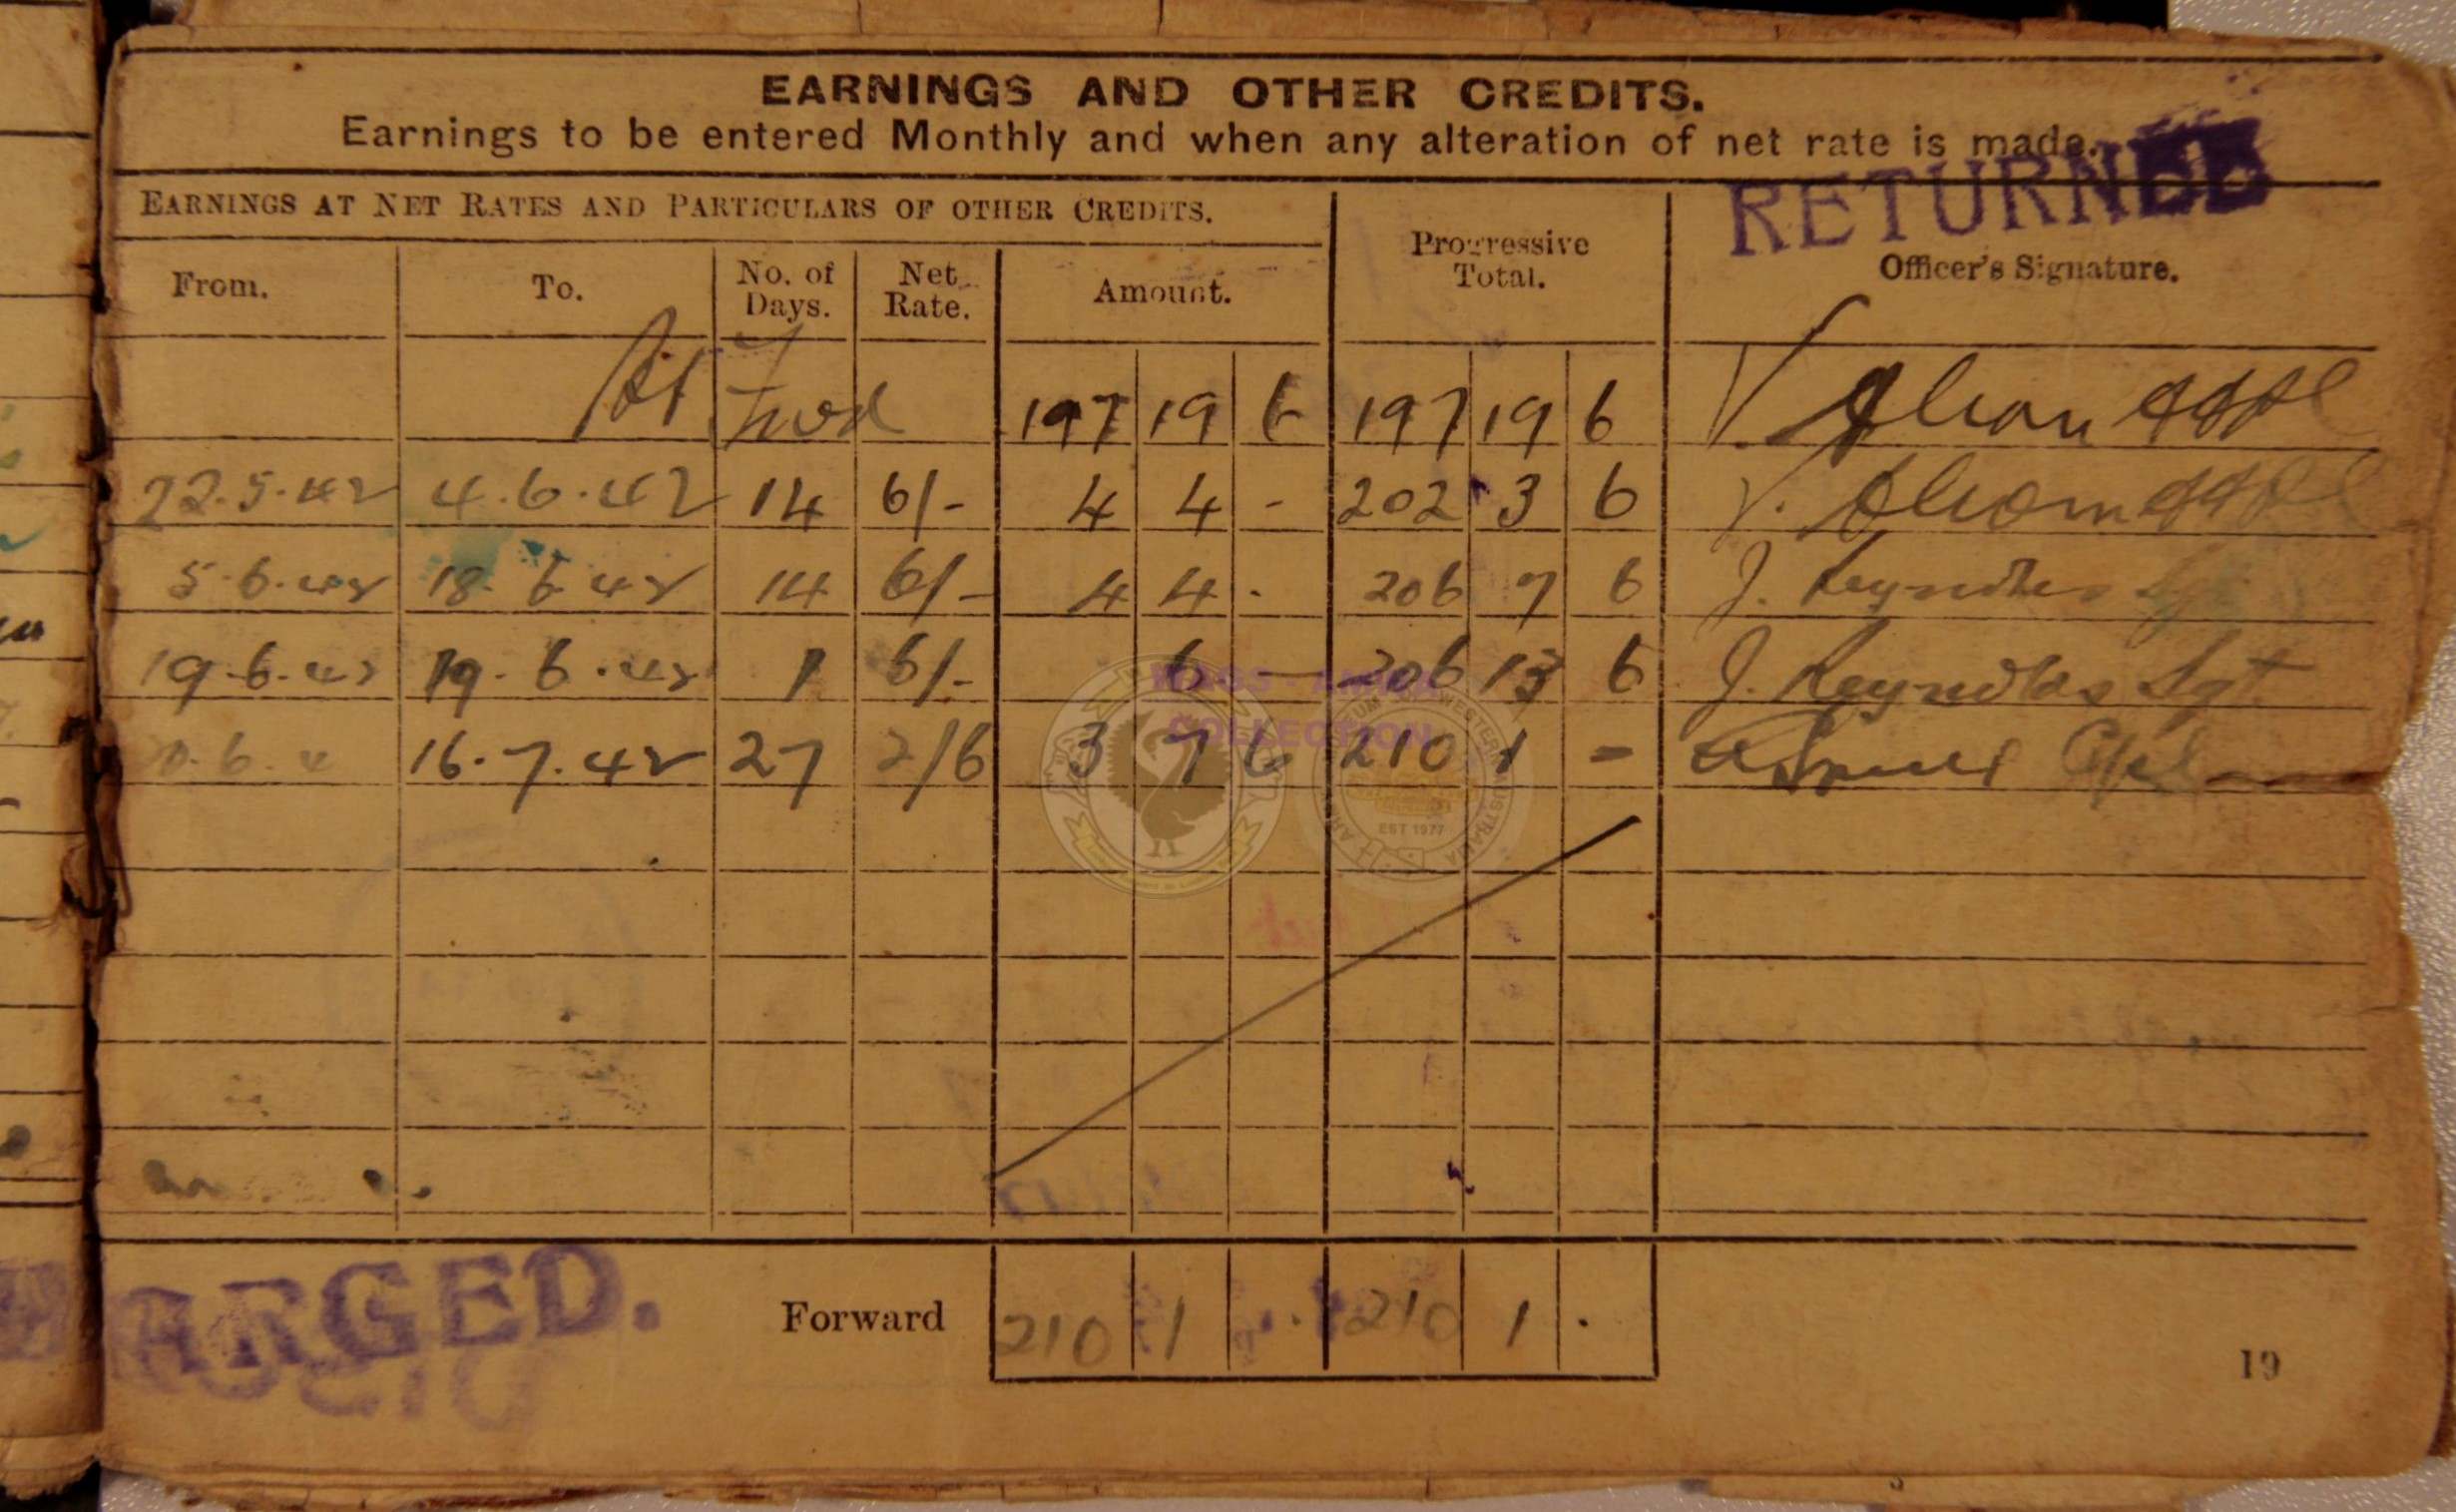 EARNINGS AND OTHER CREDITS.
Earnings to be entered Monthly and when any alteration of net rate is made.
RETURNED
EARNINGS AT NET RATES AND PARTICULARS OF OTHER CREDITS.
Progressive Total.
Officer's Signature.
From. To. No. of Days. Net Rate. Amount.
Fwd 197 19 6 197 19 6
22.5.42 4.6.42 14 6/- 4 4 - 202 3 6
5.6.42 18.6.42 14 6/- 4 4 - 206 7 6 J. Reynolds Sgt
19.6.42 19.6.42 1 6/- 6 — 206 13 6 J. Reynolds Sgt
16.7.42 27 2/6 3 7 6 210 1 - Cpl
COLLECTION
EST 1977
ARGED.
Forward 210 1 . 210 1 .
19